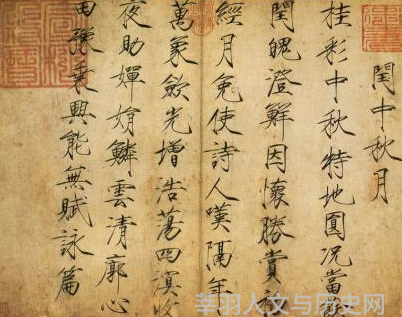 閏中秋月
桂彩中秋特地圓況當
閏魄澄鮮因懷勝賞初
經月免使詩人嘆隔年
萬象斂光增浩蕩四溟收
夜助嬋娟鱗雲清廓心
田豫乘興能無賦詠篇
莘羽人文与历史网